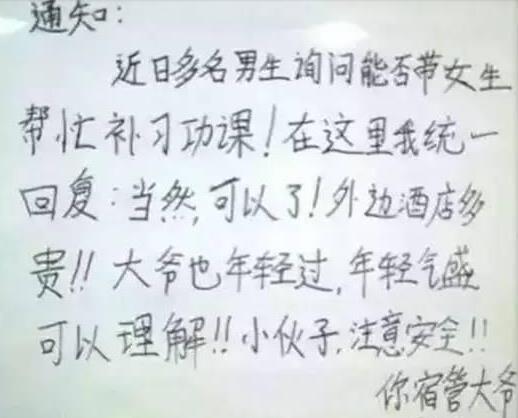 通知:
近日多名男生询问能否带女生
帮忙补习功课!在这里我统一
回复:当然,可以了!外边酒店多
贵!!大爷也年轻过,年轻气盛
可以理解!!小伙子,注意安全!!
你宿管大爷